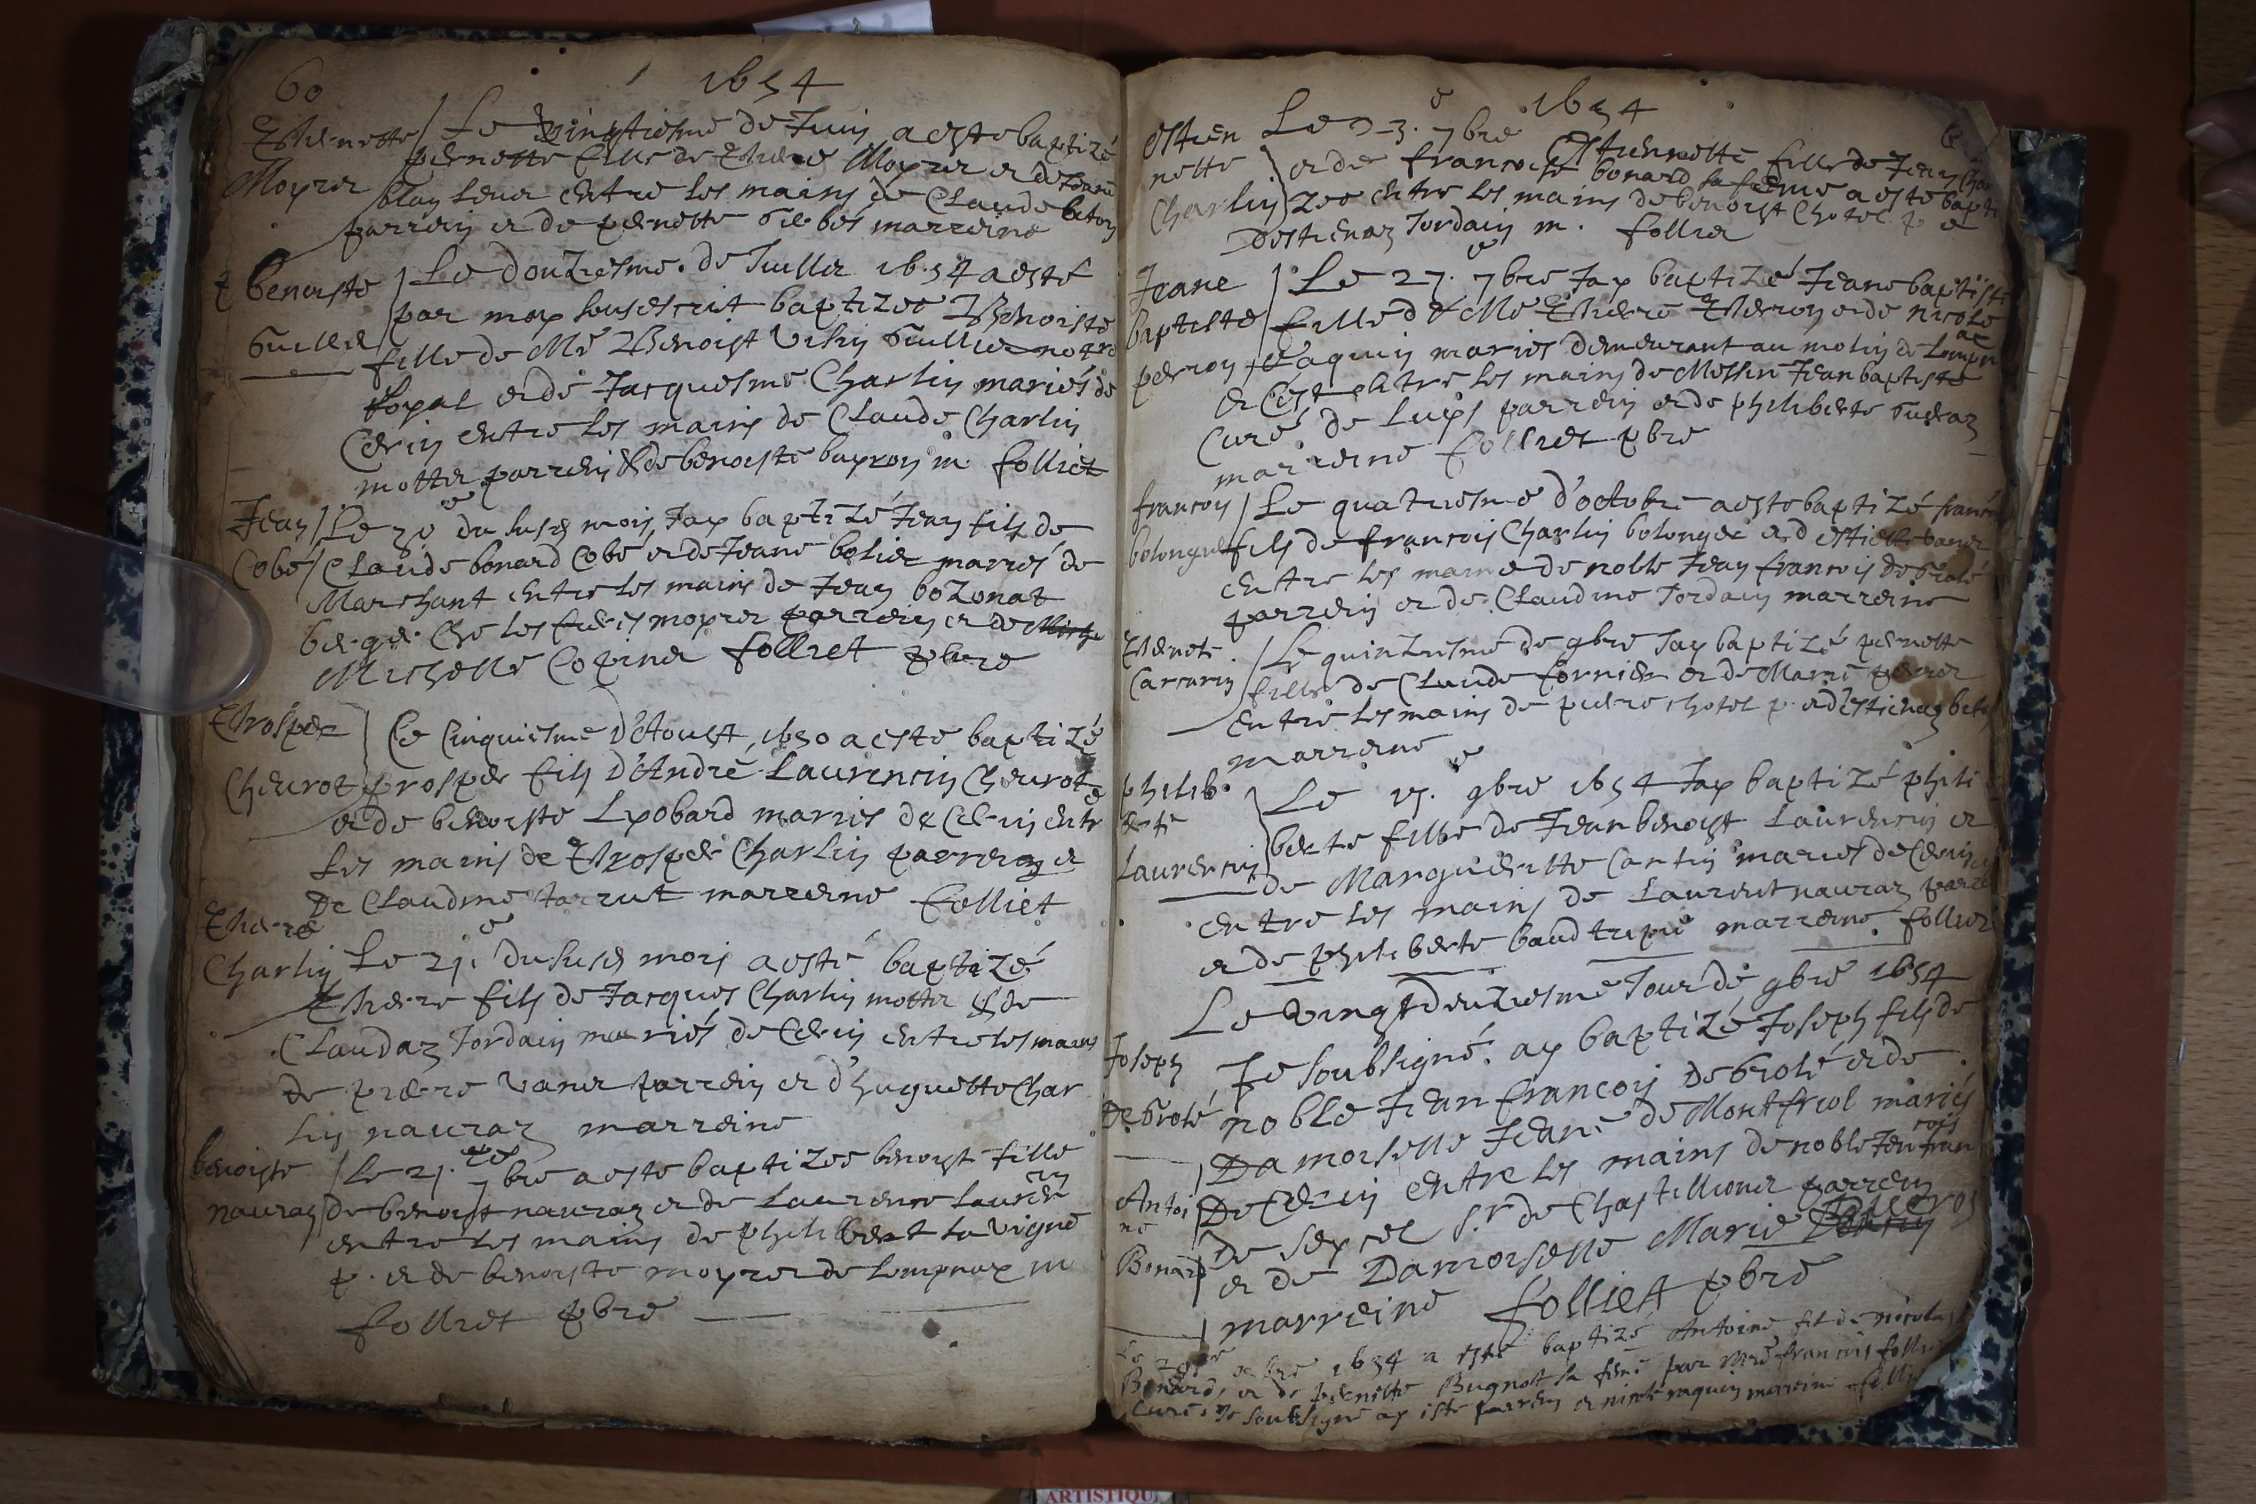 60
1654
Pernette
Moyret
Le vingtiesme de Juin a este baptizé
pernette fille de Pierre Moyret et de Jeane
entre les mains de Claude beton
parrein et de pernette marreine
benoiste
Guillie
Le douziesme de Juillet 1654 a esté
par moy soubscrit baptizee Benoiste
fille de Me Benoist Guillie notre
Royal et de Jacquesme Charlin mariés de
Cerin entre les mains de Claude Charlin
mottet parrein & de benoiste bayron m. folliet
Jean
Cobé
Le 30e du susd mois Jay baptizé Jean fils de
Claude bonard Cobé et de Jeane bolier mariés de
Marchant entre les mains de Jean bozonat
moyret parrein et de
Michelle Copinet folliet pbre
Prosper
Cheurot
Ce Cinquiesme d'Aoust, 1650 a este baptizé
prosper fils d'André Laurencin Cheurot
et de benoiste Lyobard mariés de Cerin entre
les mains de Prosper Charlin parrein et
De Claudine tarrut marreine folliet
Pierre
Charlin
Le 21e du susd mois a esté baptizé
Pierre fils de Jacques Charlin mottet & de
Claudaz Jordain mariés de Cerin entre les mains
de pierre vanet parrein et d'huguette Char
lin nauraz marreine
benoiste
nauraz
Le 21. 7bre a este baptizee benoist fille
de benoist nauraz et de Laurence Lauren
cin
entre les mains de philibert la vigne
p. et de benoiste moyret de Lompnax m
folliet pbre
1654
estien
nette
Charlin
Le 7bre Estiennette fille de Jean Char
et de francoise bonard sa feme a este bapti
zee entre les mains de benoist Chotel p e
Destienaz Jordain m. folliet
Jeane
baptiste
perron
Le 27. 7bre Jay baptizé Jeane baptiste
fille de Me Pierre Perron et de nicole
Jaquin mariés demeurant au molin de Lompn
ax
et c'est entre les mains de Messire Jean baptiste
Curé de Luys parrein et de philiberte Gueraz
marreine folliet pbre
francois
bolonguet
Le quatriesme d'octobre a este baptizé francois
fils de francois Charlin bolonget et d estiette vanet
entre les mains de noble Jean francois de Grolé
parrein et de Claudine Jordain marreine
Pernete
Carcarin
Le quinziesme de 9bre Jay baptizé pernette
fille de Claude Cornier et de Marie perret
entre les mains de pierre Chotel p. et d'estienaz beto
marreine
philib
erte
Laurencin
Le 17. 9bre 1654 Jay baptizé phili
berte fille de Jean benoist Laurencin et
de Marguerite Carlin mariés de Cerin
entre les mains de Laurent nauraz parre
et de philiberte baud trupie marreine. folliet
Joseph
De Grolé
Le vingt deuziesme Jour de 9bre 1654
Je soubsigné. ay baptizé Joseph fils de
noble Jean francois de Grolé et de
Damoiselle Jeane de Montfriol mariés
De Cerin entre les mains de noble Jean fran
cois
de seyssel Sr de Chastillionet parrein
et de Damoiselle Marie
marreine folliet pbre
Antoi
ne
Bonard
1654 a esté baptizé Antoine fil de nicolas
Bonard, et de pernette Bugnot sa feme par Mre francois folliet
Curé. Je soubsigné ay esté parrein et nicole raquin marreine folliet
ARTISTIQU